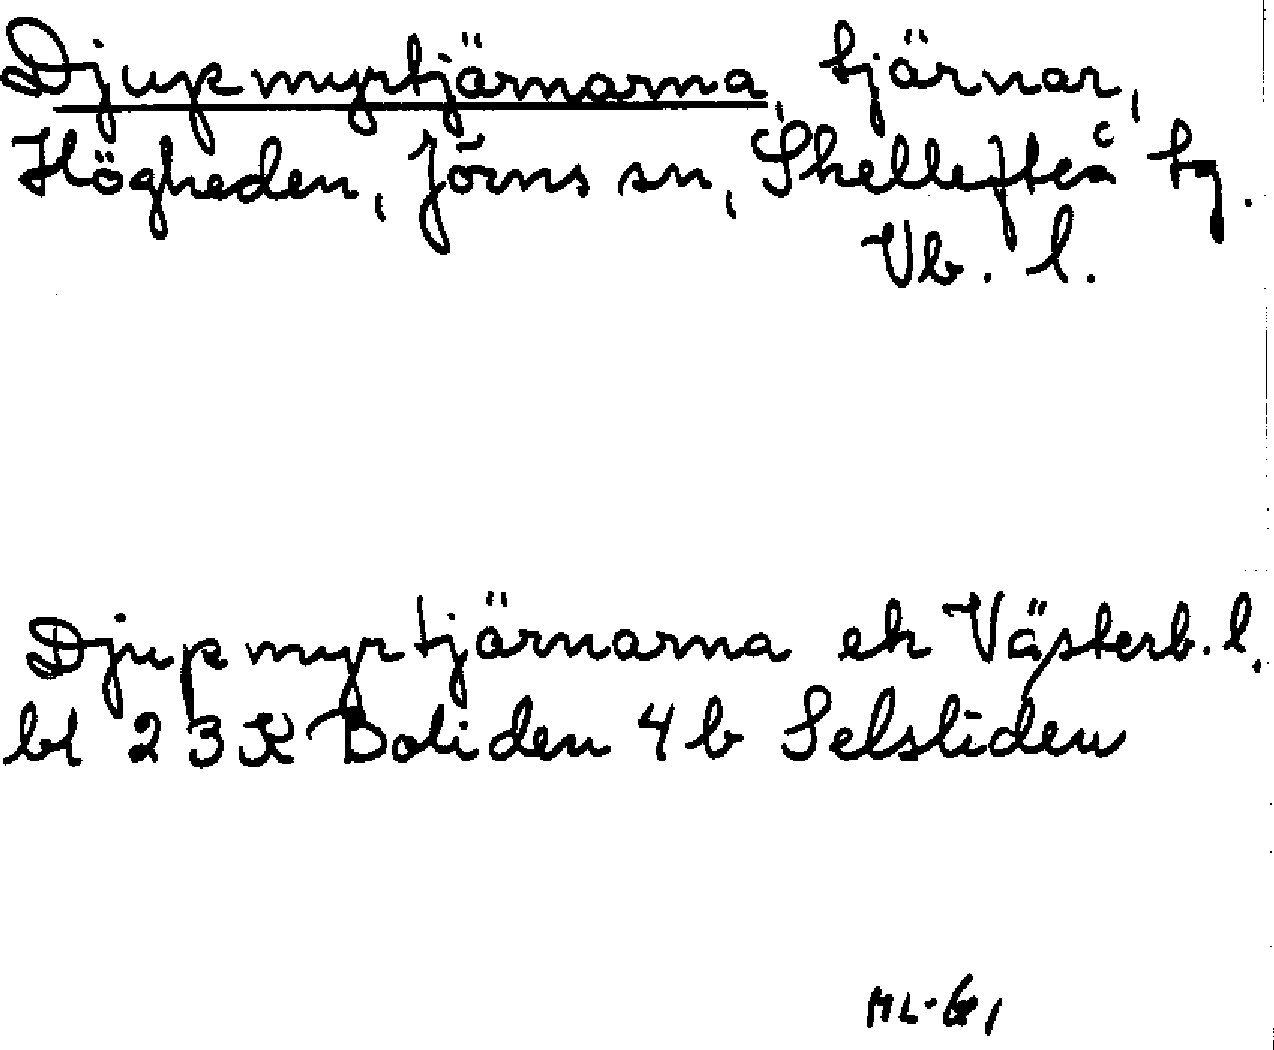 Djupmyrtjärnarna, tjärnar,
Högheden, Jörns sn, Skellefteå tg.
Vb. l.
Djupmyrtjärnarna ek Västerb. l.
bl 23K Boliden 4b Selsliden